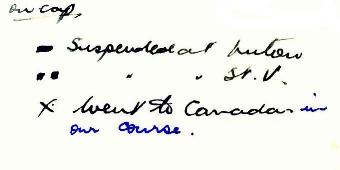 on cap.
- Suspended at Luton
.. " " St. V.
X Went to Canada in
our course.